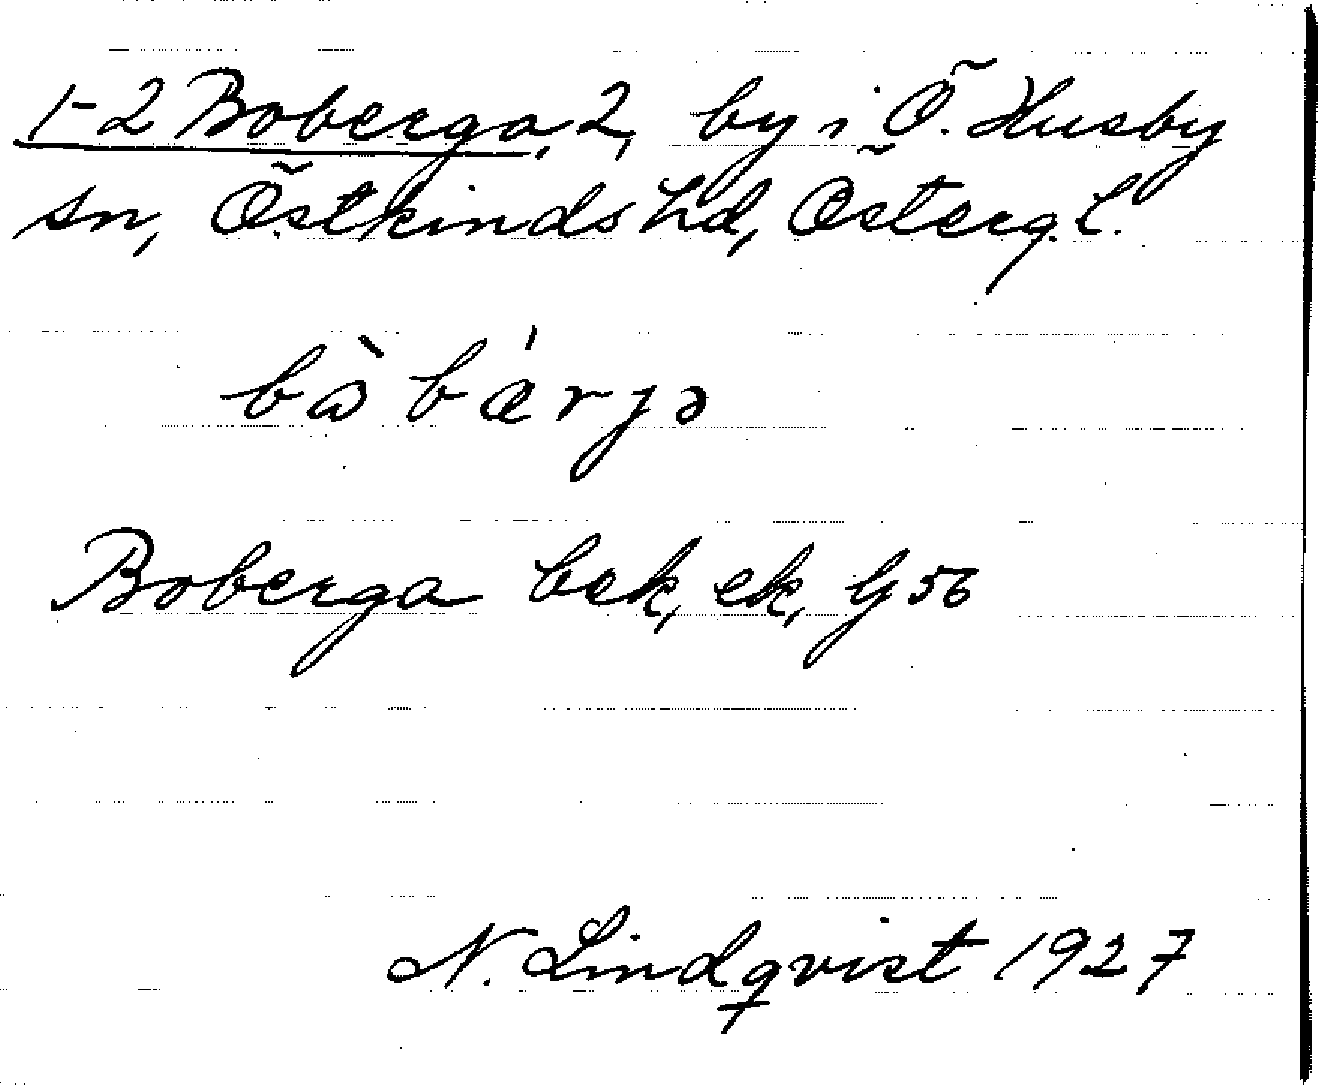 1-2 Boberga, 2, by i Ö. Husby
sn, Östkinds hd, Österg. l.
bòbárjə
Boberga bek, ek, Gj 56
N. Lindqvist 1927